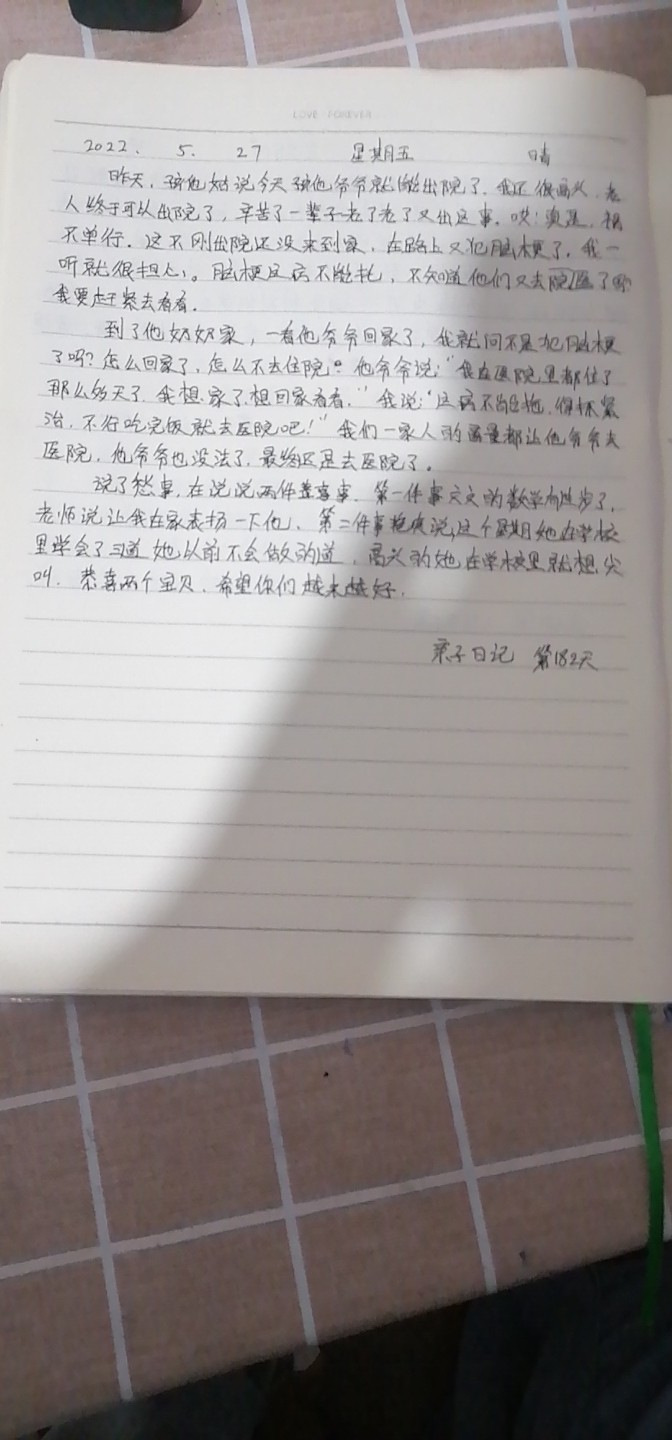 LOVE FOREVER
2022. 5. 27 星期五 晴
昨天,孩他姑说今天孩他爷爷就能出院了。我还很高兴,老
人终于可以出院了,辛苦了一辈子老了老了又出这事。哎!真是,祸
不单行。这不刚出院还没来到家,在路上又犯脑梗了。我一
听就很担心。脑梗这病不能托,不知道他们又去院医了
我要赶紧去看看。
到了他奶奶家,一看他爷爷回家了,我就问不是犯脑梗
了吗?怎么回家了,怎么不去住院。他爷爷说:“我在医院里都住了
那么多天了,我想家了想回家看看。”我说:“这病不能拖,得抓紧
治,不行吃完饭就去医院吧!”我们一家人的商量都让他爷爷去
医院,他爷爷也没法了,最终还是去医院了。
说了愁事,在说说两件喜事。第一件事文文的数学有进步了,
老师说让我在家表扬一下他。第二件事说,这个星期她在学校
里学会了三道她以前不会做的道,高兴的她在学校里就想尖
叫。恭喜两个宝贝,希望你们越来越好。
亲子日记 第182天